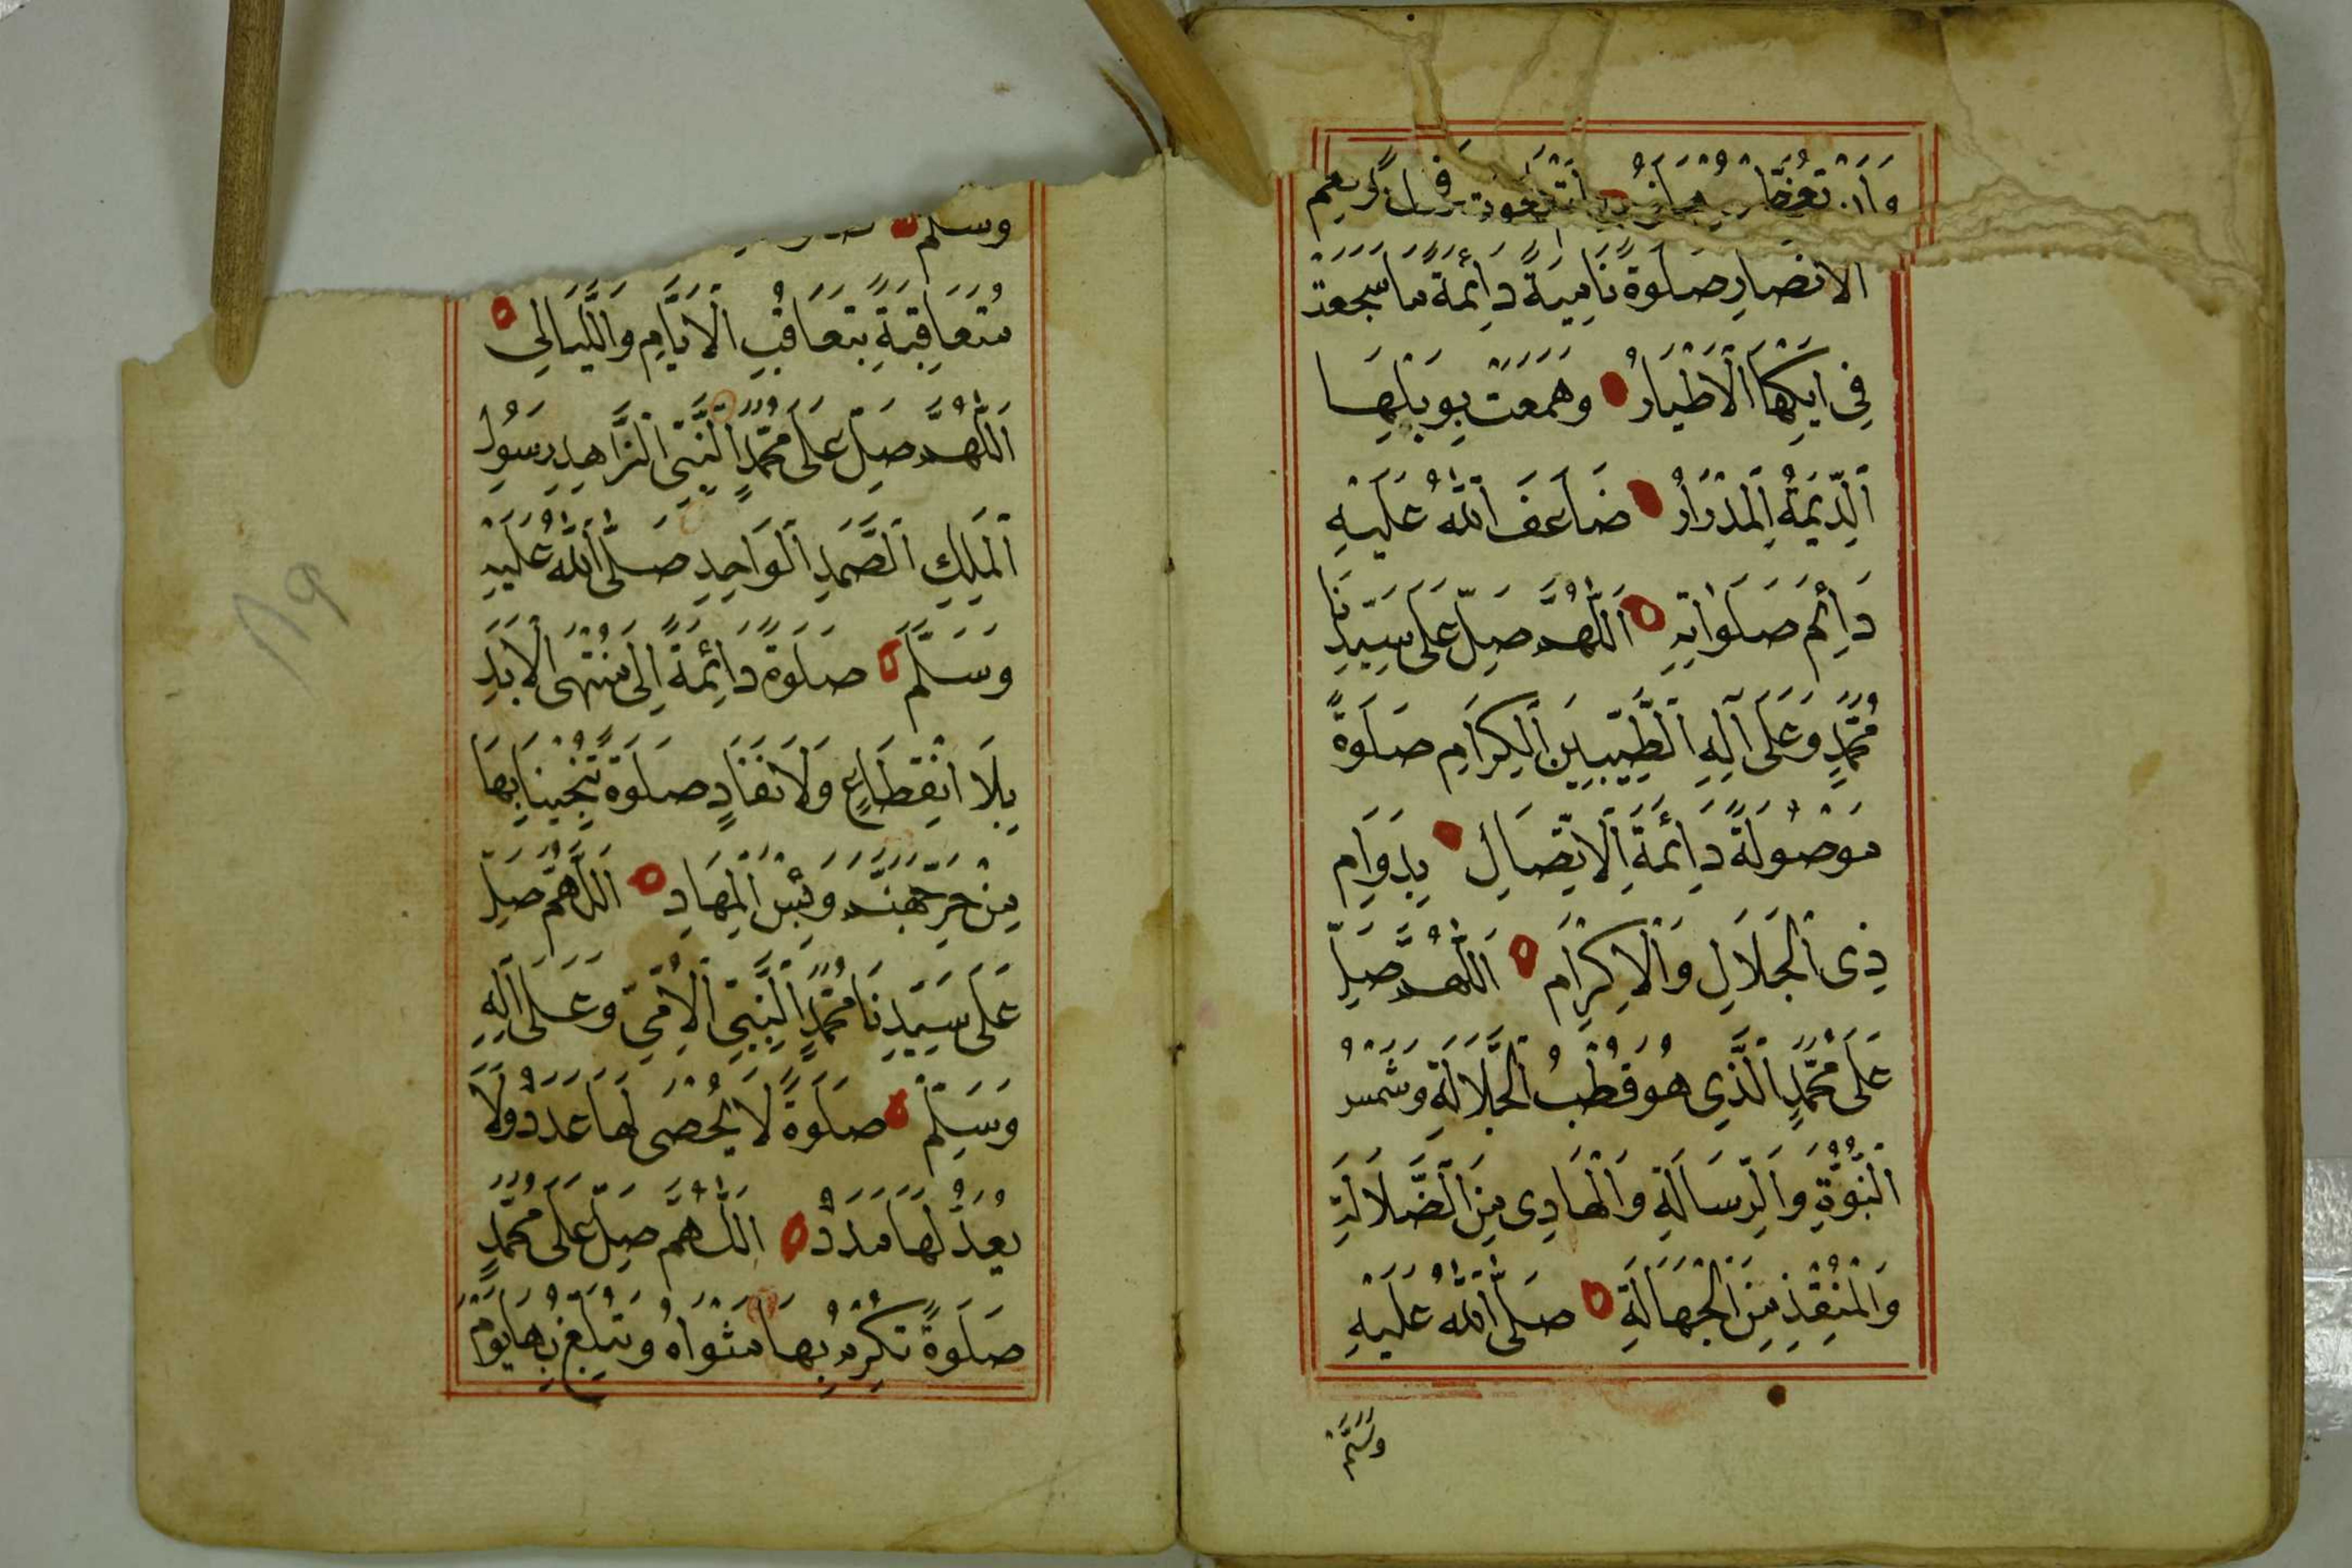 الْأَنْصَارِ صَلَوةً نَامِيَةً دَائِمَةً مَا سَجَعَتْ
فِى اَيْكِهَا الْأَطْيَارُ وَهَمَعَتْ بِوَبْلِهَا
اَلدِّيمَةُ الْمِدْرَارُ ضَاعَفَ اللّٰهُ عَلَيْهِ
دَائِمَ صَلَوَاتِهِ اَللّٰهُمَّ صَلِّ عَلَى سَيِّدِنَا
مُحَمَّدٍ وَعَلَى آلِهِ الطَّيِّبِينَ الْكِرَامِ صَلَوةً
مَوْصُولَةً دَائِمَةَ الْاِتِّصَالِ بِدَوَامِ
ذِى الْجَلَالِ وَالْاِكْرَامِ اَللّٰهُمَّ صَلِّ
عَلَى مُحَمَّدٍ الَّذِى هُوَ قُطْبُ الْجَلَالَةِ وَشَمْسُ
النُّبُوَّةِ وَالرِّسَالَةِ وَالْهَادِى مِنَ الضَّلَالَةِ
وَالْمُنْقِذِ مِنَ الْجَهَالَةِ صَلَّى اللّٰهُ عَلَيْهِ
وَسَلَّمَ
وسلم
مُتَعَاقِبَةً بِتَعَاقُبِ الْأَيَّامِ وَاللَّيَالِى
اَللّٰهُمَّ صَلِّ عَلَى مُحَمَّدٍ النَّبِىِّ الزَّاهِدِ رَسُولِ
الْمَلِكِ الصَّمَدِ الْوَاحِدِ صَلَّى اللّٰهُ عَلَيْهِ
وَسَلَّمَ صَلَوةً دَائِمَةً اِلَى مُنْتَهَى الْأَبَدِ
بِلَا انْقِطَاعٍ وَلَا نَفَادٍ صَلَوةً تُنْجِينَا بِهَا
مِنْ حَرِّ جَهَنَّمَ وَبِئْسَ الْمِهَادِ اَللّٰهُمَّ صَلِّ
عَلَى سَيِّدِنَا مُحَمَّدٍ النَّبِىِّ الْأُمِّىِّ وَعَلَى آلِهِ
وَسَلِّمْ صَلَوةً لَا يُحْصَى لَهَا عَدَدٌ وَلَا
يُعَدُّ لَهَا مَدَدٌ اَللّٰهُمَّ صَلِّ عَلَى مُحَمَّدٍ
صَلَوةً تُكْرِمُ بِهَا مَثْوَاهُ وَتُبَلِّغُ بِهَا يَوْمَ
٨٩